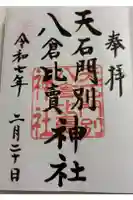 奉拝
天石門別
八倉比賣神社
令和七年 二月二十日